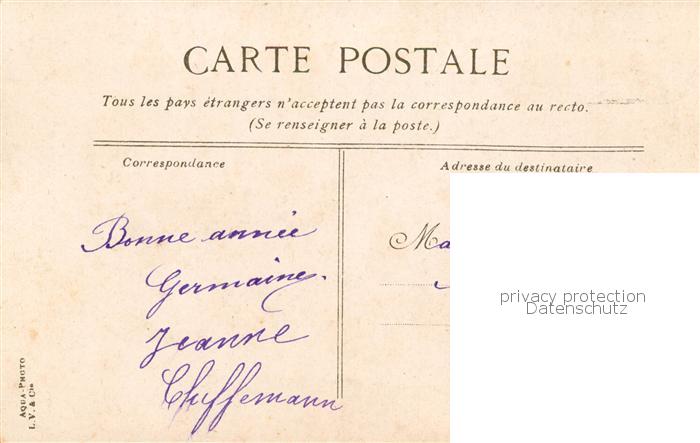 CARTE POSTALE
Tous les pays étrangers n'acceptent pas la correspondance au recto.
(Se renseigner à la poste.)
Correspondance
Adresse du destinataire
Bonne année
Germaine.
Jeanne
Ma
privacy protection
Datenschutz
AQUA-PHOTO
L. V. & Cie